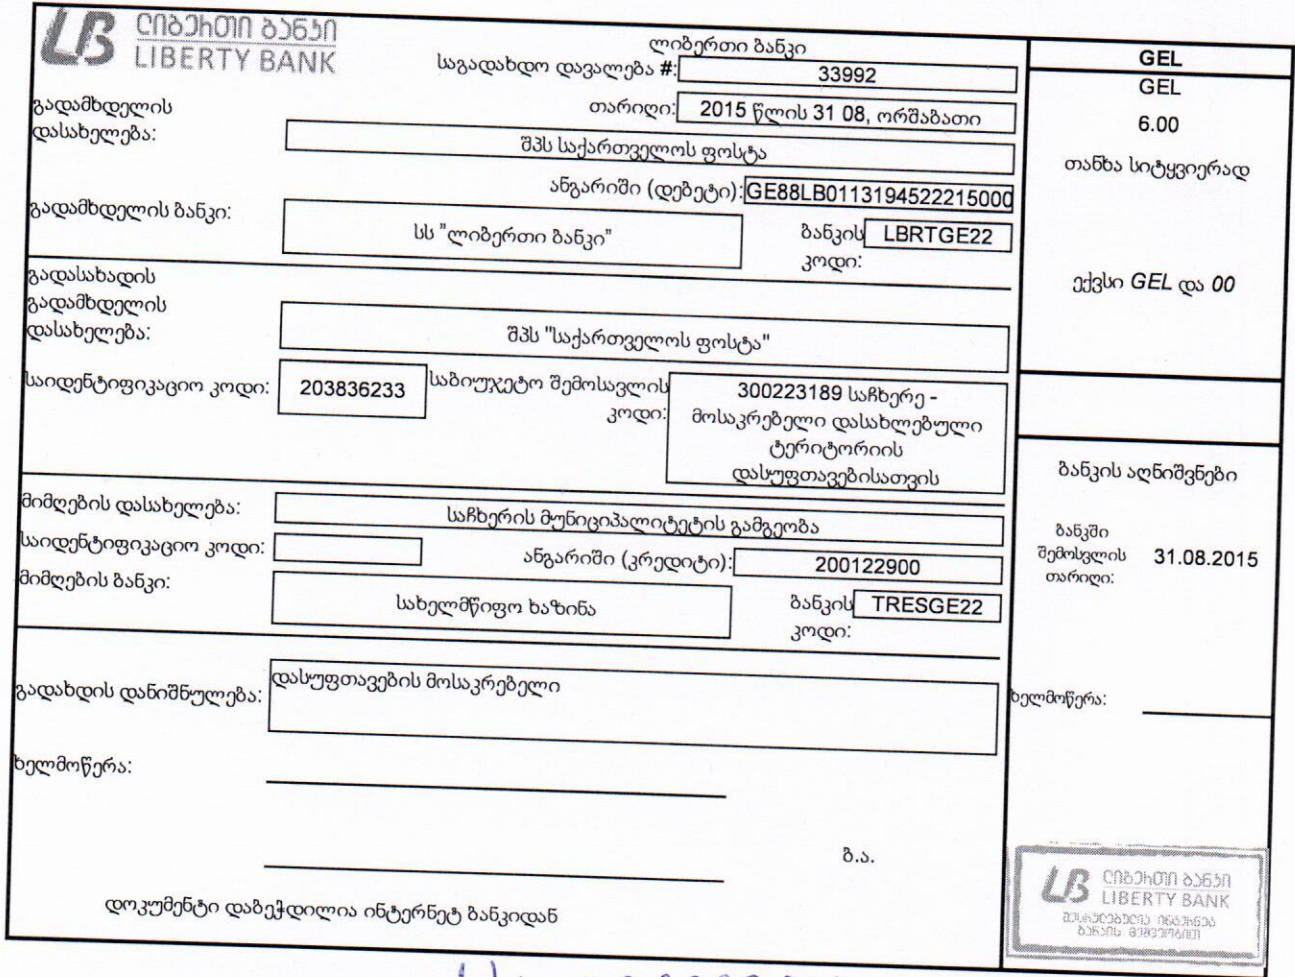 ლიბერთი ბანკი
LIBERTY BANK
ლიბერთი ბანკი
საგადახდო დავალება #: 33992
თარიღი: 2015 წლის 31 08, ორშაბათი
გადამხდელის
დასახელება:
შპს საქართველოს ფოსტა
ანგარიში (დებეტი): GE88LB0113194522215000
გადამხდელის ბანკი:
სს "ლიბერთი ბანკი"
ბანკის LBRTGE22
კოდი:
გადასახადის
გადამხდელის
დასახელება:
შპს "საქართველოს ფოსტა"
საიდენტიფიკაციო კოდი: 203836233
საბიუჯეტო შემოსავლის
კოდი:
300223189 საჩხერე -
მოსაკრებელი დასახლებული
ტერიტორიის
დასუფთავებისათვის
მიმღების დასახელება: საჩხერის მუნიციპალიტეტის გამგეობა
საიდენტიფიკაციო კოდი:
ანგარიში (კრედიტი): 200122900
მიმღების ბანკი:
სახელმწიფო ხაზინა
ბანკის TRESGE22
კოდი:
გადახდის დანიშნულება: დასუფთავების მოსაკრებელი
ხელმოწერა:
ბ.ა.
დოკუმენტი დაბეჭდილია ინტერნეტ ბანკიდან
GEL
GEL
6.00
თანხა სიტყვიერად
ექვსი GEL და 00
ბანკის აღნიშვნები
ბანკში
შემოსვლის
თარიღი:
31.08.2015
ხელმოწერა:
ლიბერთი ბანკი
LIBERTY BANK
შესრულებულია ინტერნეტ
ბანკის მეშვეობით